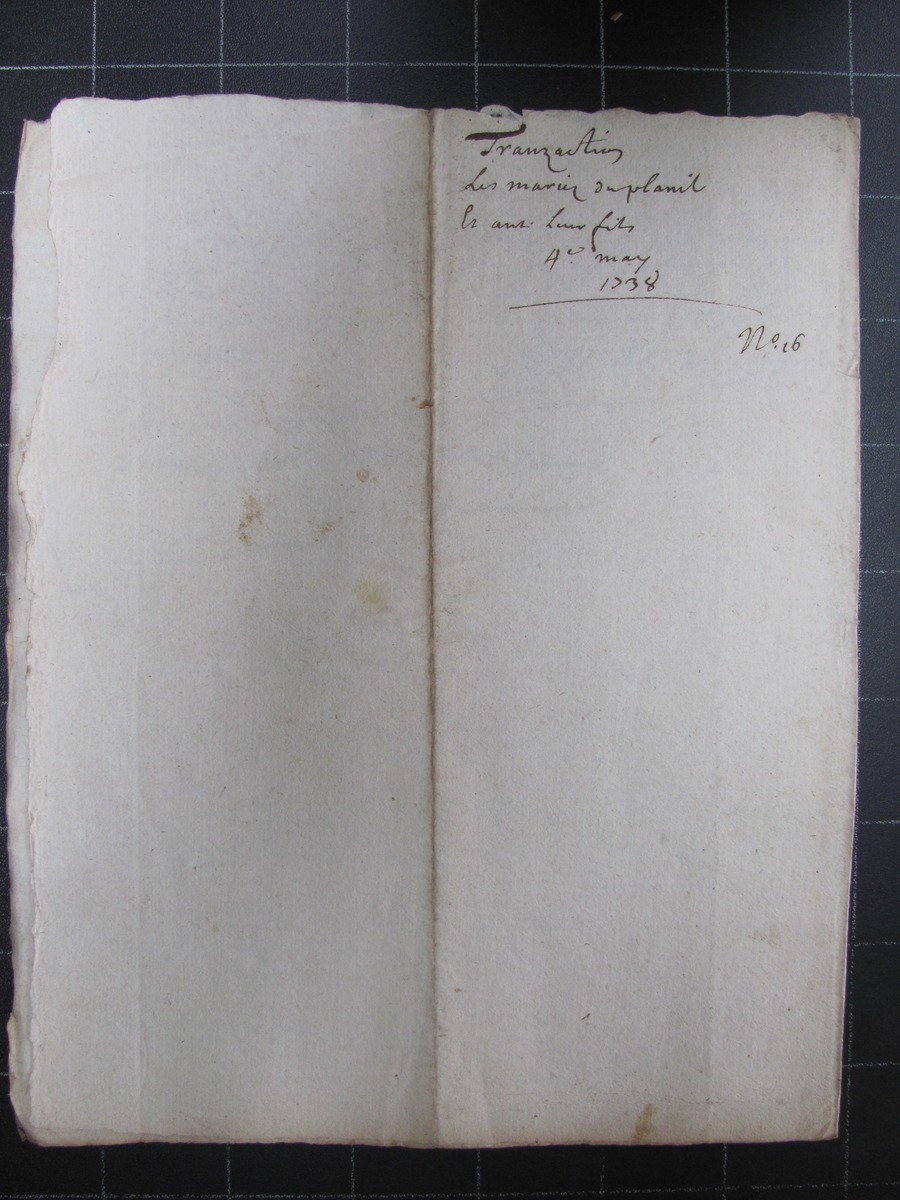 Tranzaction
Les mariez du planil
Et ant. Leur fils
4e. may
1738
No. 16